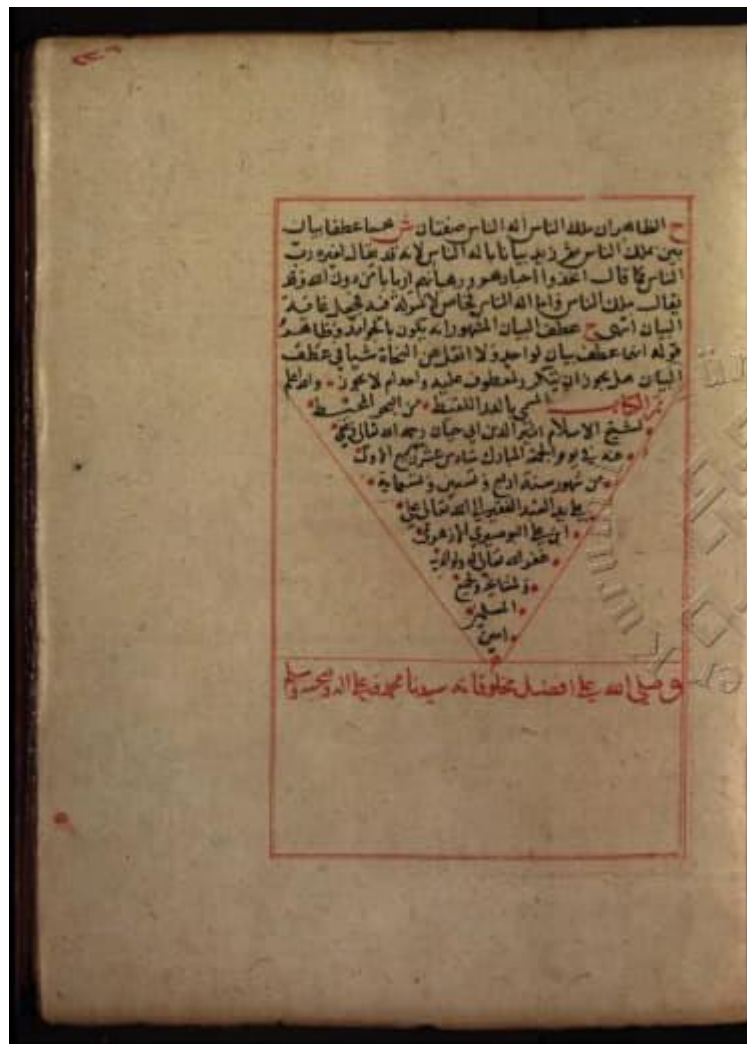 ح الظاهر ان ملك الناس اله الناس صفتان ش هما عطفا بيان
بين بملك الناس ثم زيد بيانا باله الناس لانه قد يقال لغيره رب
الناس كما قال اتخذوا احبارهم ورهبانهم اربابا من دون الله وقد
يقال ملك الناس واما اله الناس فخاص لا شركة فيه فجعل غاية
البيان انتهى ح عطف البيان المشهور انه يكون بالجوامد وظاهر
قوله انهما عطفا بيان لواحد ولا انقل عن النحاة شيا في عطف
البيان هل يجوز ان يتكرر لمعطوف عليه واحد ام لا يجوز والله اعلم
تم الكتاب المسمى بالدر اللقيط من البحر المحيط
لشيخ الاسلام اثير الدين ابي حيان رحمه الله تعالى
عنه في يوم الجمعة المبارك سادس عشر ربيع الاول
من شهور سنة اربع وتسعين وتسعماية
على يد العبد الفقير الى الله تعالى علي
ابن علي البوصيري الازهري
غفر الله تعالى له ولوالديه
ولمشايخه ولجميع
المسلمين
امين
وصلى الله على افضل مخلوقاته سيدنا محمد وعلى اله وصحبه وسلم